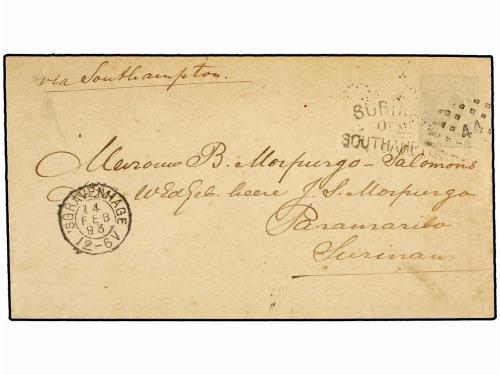 via Southampton.
SURIN
OF
SOUTHAMP
44
Mevrouw B. Morpurgo-Salomons
WEdGeb. heere J. S. Morpurgo
Paramaribo
Suriname
'SGRAVENHAGE
14
FEB
93
12-6V